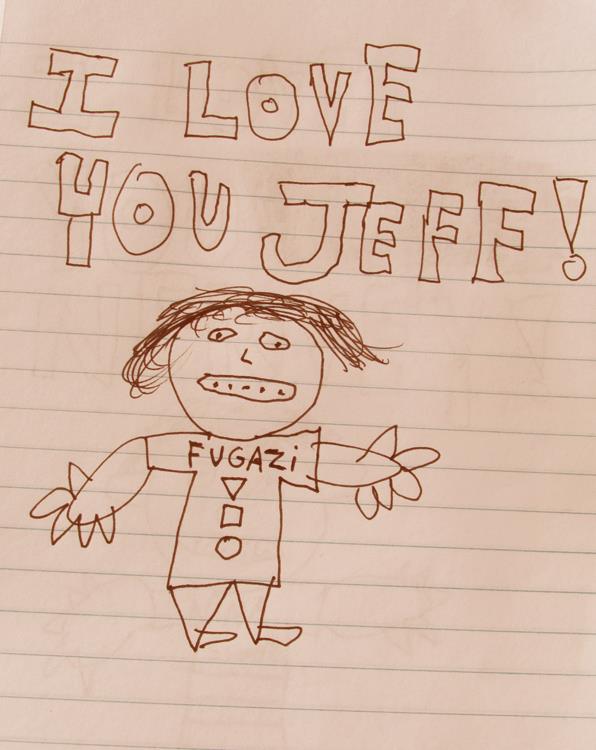 I LOVE
YOU JEFF!
FUGAZi